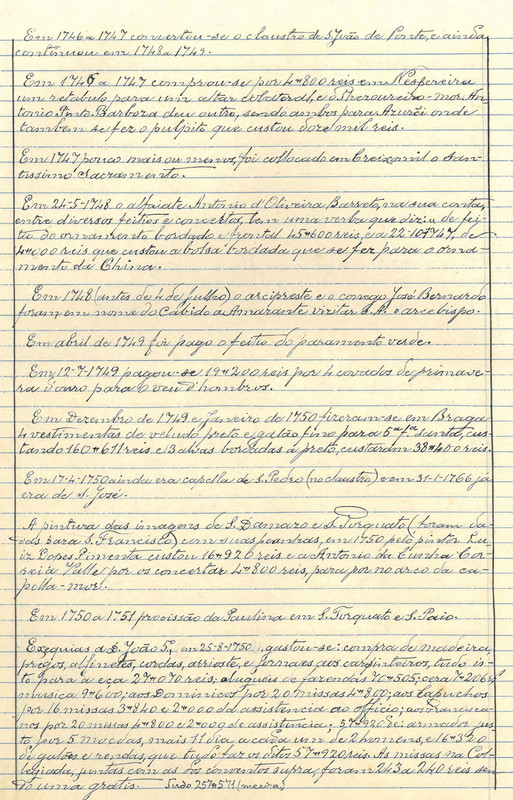 Em 1746 a 1747 concertou-se o claustro de S. João de Ponte, e ainda
continuou em 1748 a 1749.
Em 1746 a 1747 comprou-se por 4$800 reis em Nespereira
um retabulo para um altar colateral, e o Thezoureiro-mór An-
tonio Pinto Barbora deu outro, sendo ambos para Azurêi onde
tambem se fez o pulpito que custou doze mil reis.
Em 1747 pouco mais ou menos, foi collocado em Creixomil o San-
tissimo Sacramento.
Em 24-5-1748 o alfaiate Antonio d'Oliveira Barreto, na sua conta,
entre diversos feitios e concertos, tem uma verba que diz: de fei-
tio do ornamento bordado e frontal 45$600 reis, e a 22-10-1747, de
4$000 reis que custou a bolsa bordada que se fez para o orna-
mento da China.
Em 1748 (antes de 4 de Julho) o arcipreste e o conego José Bernardo
foram em nome do Cabido a Amarante vizitar S. A. o arcebispo.
Em abril de 1749 foi pago o feitio do paramento verde.
Em 12-7-1749 pagou-se 19$200 reis por 4 covados de primave-
ra d'ouro para o veu d'hombros.
Em Dezembro de 1749 e Janeiro de 1750 fizeram-se em Braga
4 vestimentas de veludo preto e galão fino para 5ª fª santa, cus-
tando 160$671 reis e 13 alvas bordadas á preto, custaram 38$400 reis.
Em 17-4-1750 ainda era capella de S. Pedro (no claustro) e em 31-1-1766 já
era de S. José.
A pintura das imagens de S. Damazo e S. Torquato (foram da-
das para S. Francisco) com suas peanhas, em 1750 pelo pintor Lu-
iz Lopes Pimenta custou 16$920 reis e a Antonio da Cunha Cor-
reia Valle por os concertar 4$800 reis, para por no arco da ca-
pella-mór.
Em 1750 a 1751 procissão da Paulina em S. Torquato e S. Paio.
Exequias a D. João 5º, em 25-8-1750, gastou-se: compra de madeira,
pregos, alfinetes, cordas, arrioste, e jornaes aos carpinteiros, tudo is-
to para a eça 27$070 reis; alugueis de fazendas 70$505; cera 72$065;
musica 9$600; aos Dominicos por 20 missas 4$800; aos Capuchos
por 16 missas 3$840 e 2$000 da assistencia ao officio; aos Francisca-
nos por 20 missas 4$800 e 2$000 de assistencia; 57$920 de: armador, jus-
to por 5 moedas, mais 11 dia a cada um de 2 homens, e 16$320
de galões e rendas, que tudo faz os ditos 57$920 reis. As missas na Col-
legiada, juntas com as dos conventos supra, foram 243 a 240 reis sen-
do uma gratis. Tudo 257$571 (meeira)